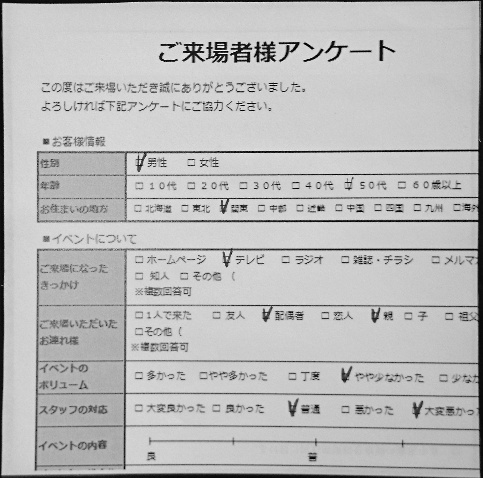 ご来場者様アンケート
この度はご来場いただき誠にありがとうございました。
よろしければ下記アンケートにご協力ください。
■お客様情報
性別 ☑男性 □女性
年齢 □10代 □20代 □30代 □40代 ☑50代 □60歳以上
お住まいの地方 □北海道 □東北 ☑関東 □中部 □近畿 □中国 □四国 □九州 □海外
■イベントについて
ご来場になった
きっかけ
□ホームページ ☑テレビ □ラジオ □雑誌・チラシ □メルマ
□知人 □その他（
※複数回答可
ご来場いただいた
お連れ様
□1人で来た □友人 ☑配偶者 □恋人 ☑親 □子 □祖父
□その他（
※複数回答可
イベントの
ボリューム
□多かった □やや多かった □丁度 ☑やや少なかった □少な
スタッフの対応 □大変良かった □良かった ☑普通 □悪かった ☑大変悪かっ
イベントの内容
良 普